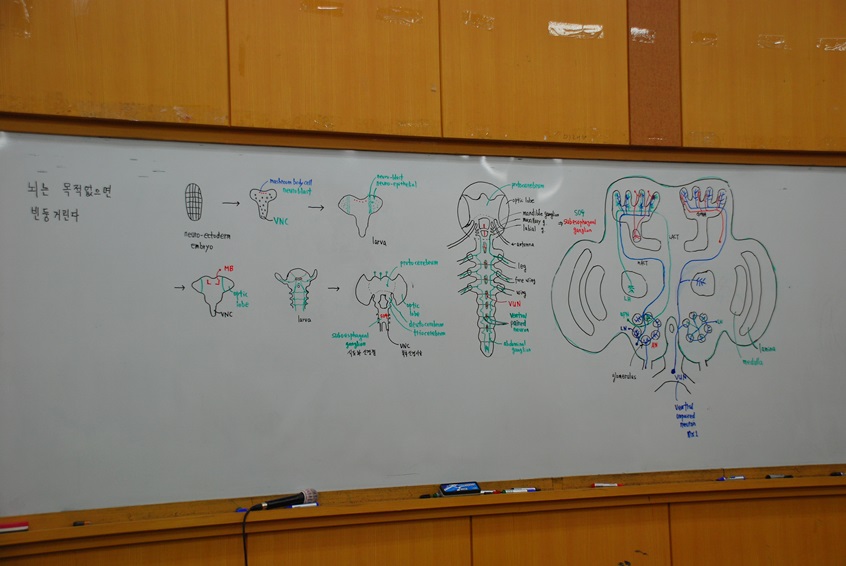 뇌는 목적없으면
빈둥거린다
neuro-ectoderm
embryo
mushroom body cell
neuroblast
VNC
neuroblast
neuro-epithelial
larva
MB
optic
lobe
VNC
larva
protocerebrum
optic
lobe
deutocerebrum
tritocerebrum
SOG
subesophageal
ganglion
VNC
protocerebrum
optic lobe
mandible ganglion
maxillary g
labial g
antenna
leg
fore wing
wing
VUN
Ventral
neuron
abdominal
ganglion
SOG
⇒ subesophageal
ganglion
LH
LN
glomerulus
VUN
Ventral
unpaired
neuron
lamina
medulla